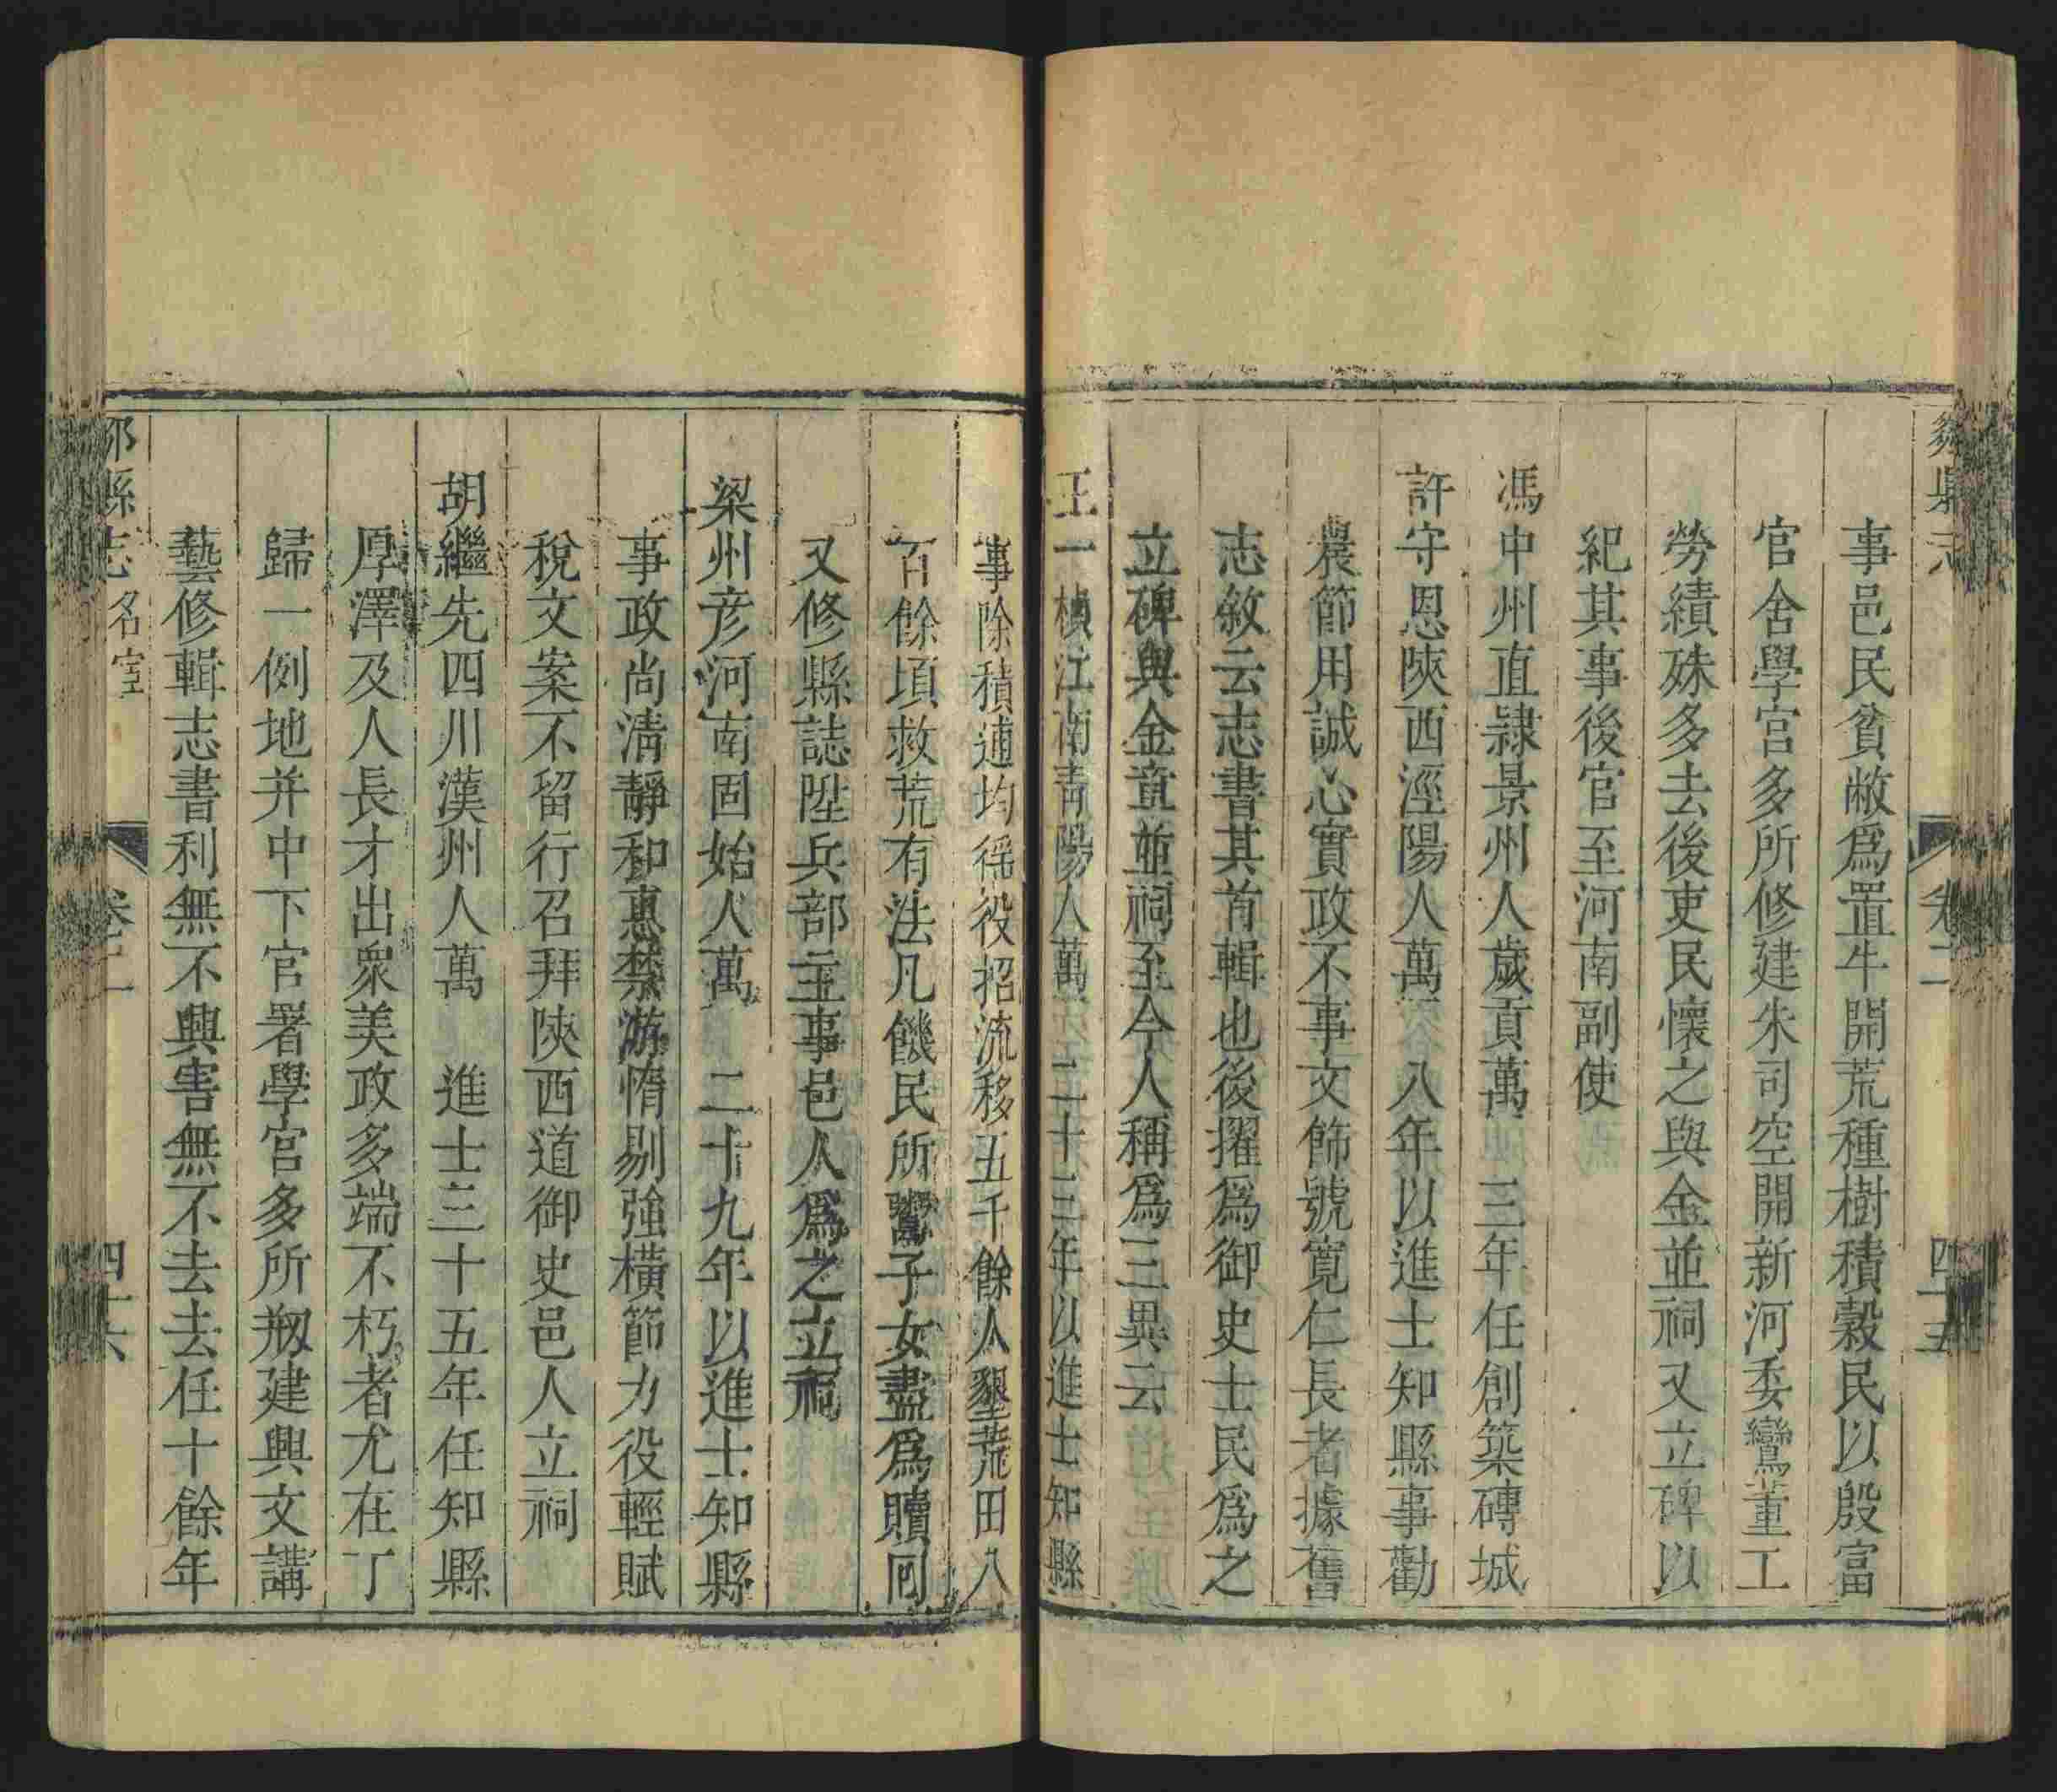 縣志
卷二
四十五
事邑民貧敝爲置牛開荒種樹積穀民以殷富
官舍學宮多所修建朱司空開新河委鸞董工
勞績殊多去後吏民懷之與金並祠又立碑以
紀其事後官至河南副使
馮中州直隸景州人歲貢萬 三年任創築磚城
許守恩陝西涇陽人萬 八年以進士知縣事勸
農節用誠心實政不事文飾號寬仁長者據舊
志敘云志書其首輯也後擢爲御史士民爲之
立碑與金童並祠至今人稱爲三異云
王一楨江南青陽人萬 二十三年以進士知縣
事除積逋均徭役招流移五千餘人墾荒田八
百餘頃救荒有法凡饑民所鬻子女盡爲贖回
又修縣誌陞兵部主事邑人爲之立祠
梁州彥河南固始人萬 二十九年以進士知縣
事政尚清靜和惠禁游惰剔強橫節力役輕賦
稅文案不留行召拜陝西道御史邑人立祠
胡繼先四川漢州人萬 進士三十五年任知縣
厚澤及人長才出衆美政多端不朽者尤在丁
歸一例地并中下官署學宮多所刱建興文講
藝修輯志書利無不興害無不去去任十餘年
縣志 名宦
卷二
四十六